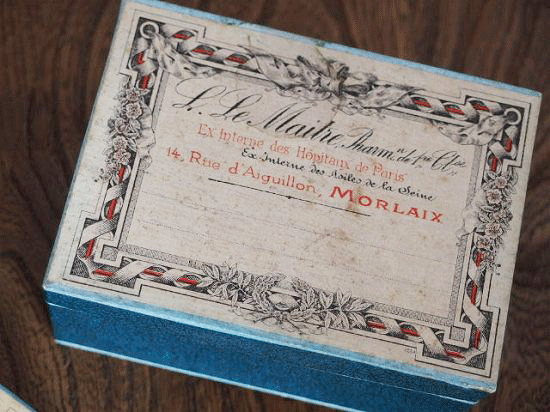 L. Le Maitre, Pharm.en de 1re Clsse
Ex Interne des Hôpitaux de Paris
Ex Interne des Asiles de la Seine
14, Rue d'Aiguillon, MORLAIX